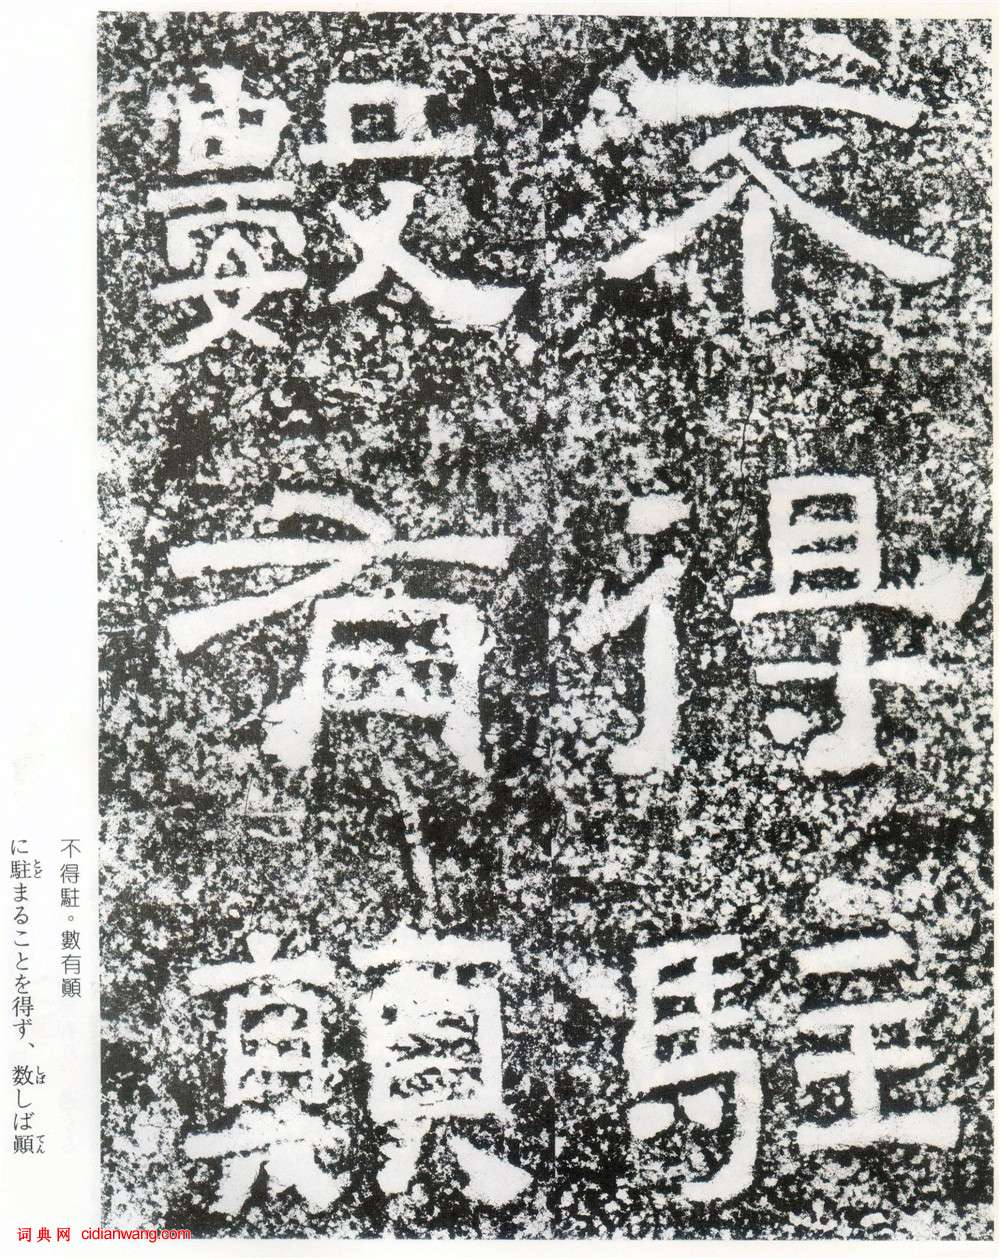 不得駐
數有顚
不得駐。數有顚
に駐まることを得ず、数しば顚
とど
しば
てん
词典网 cidianwang.com